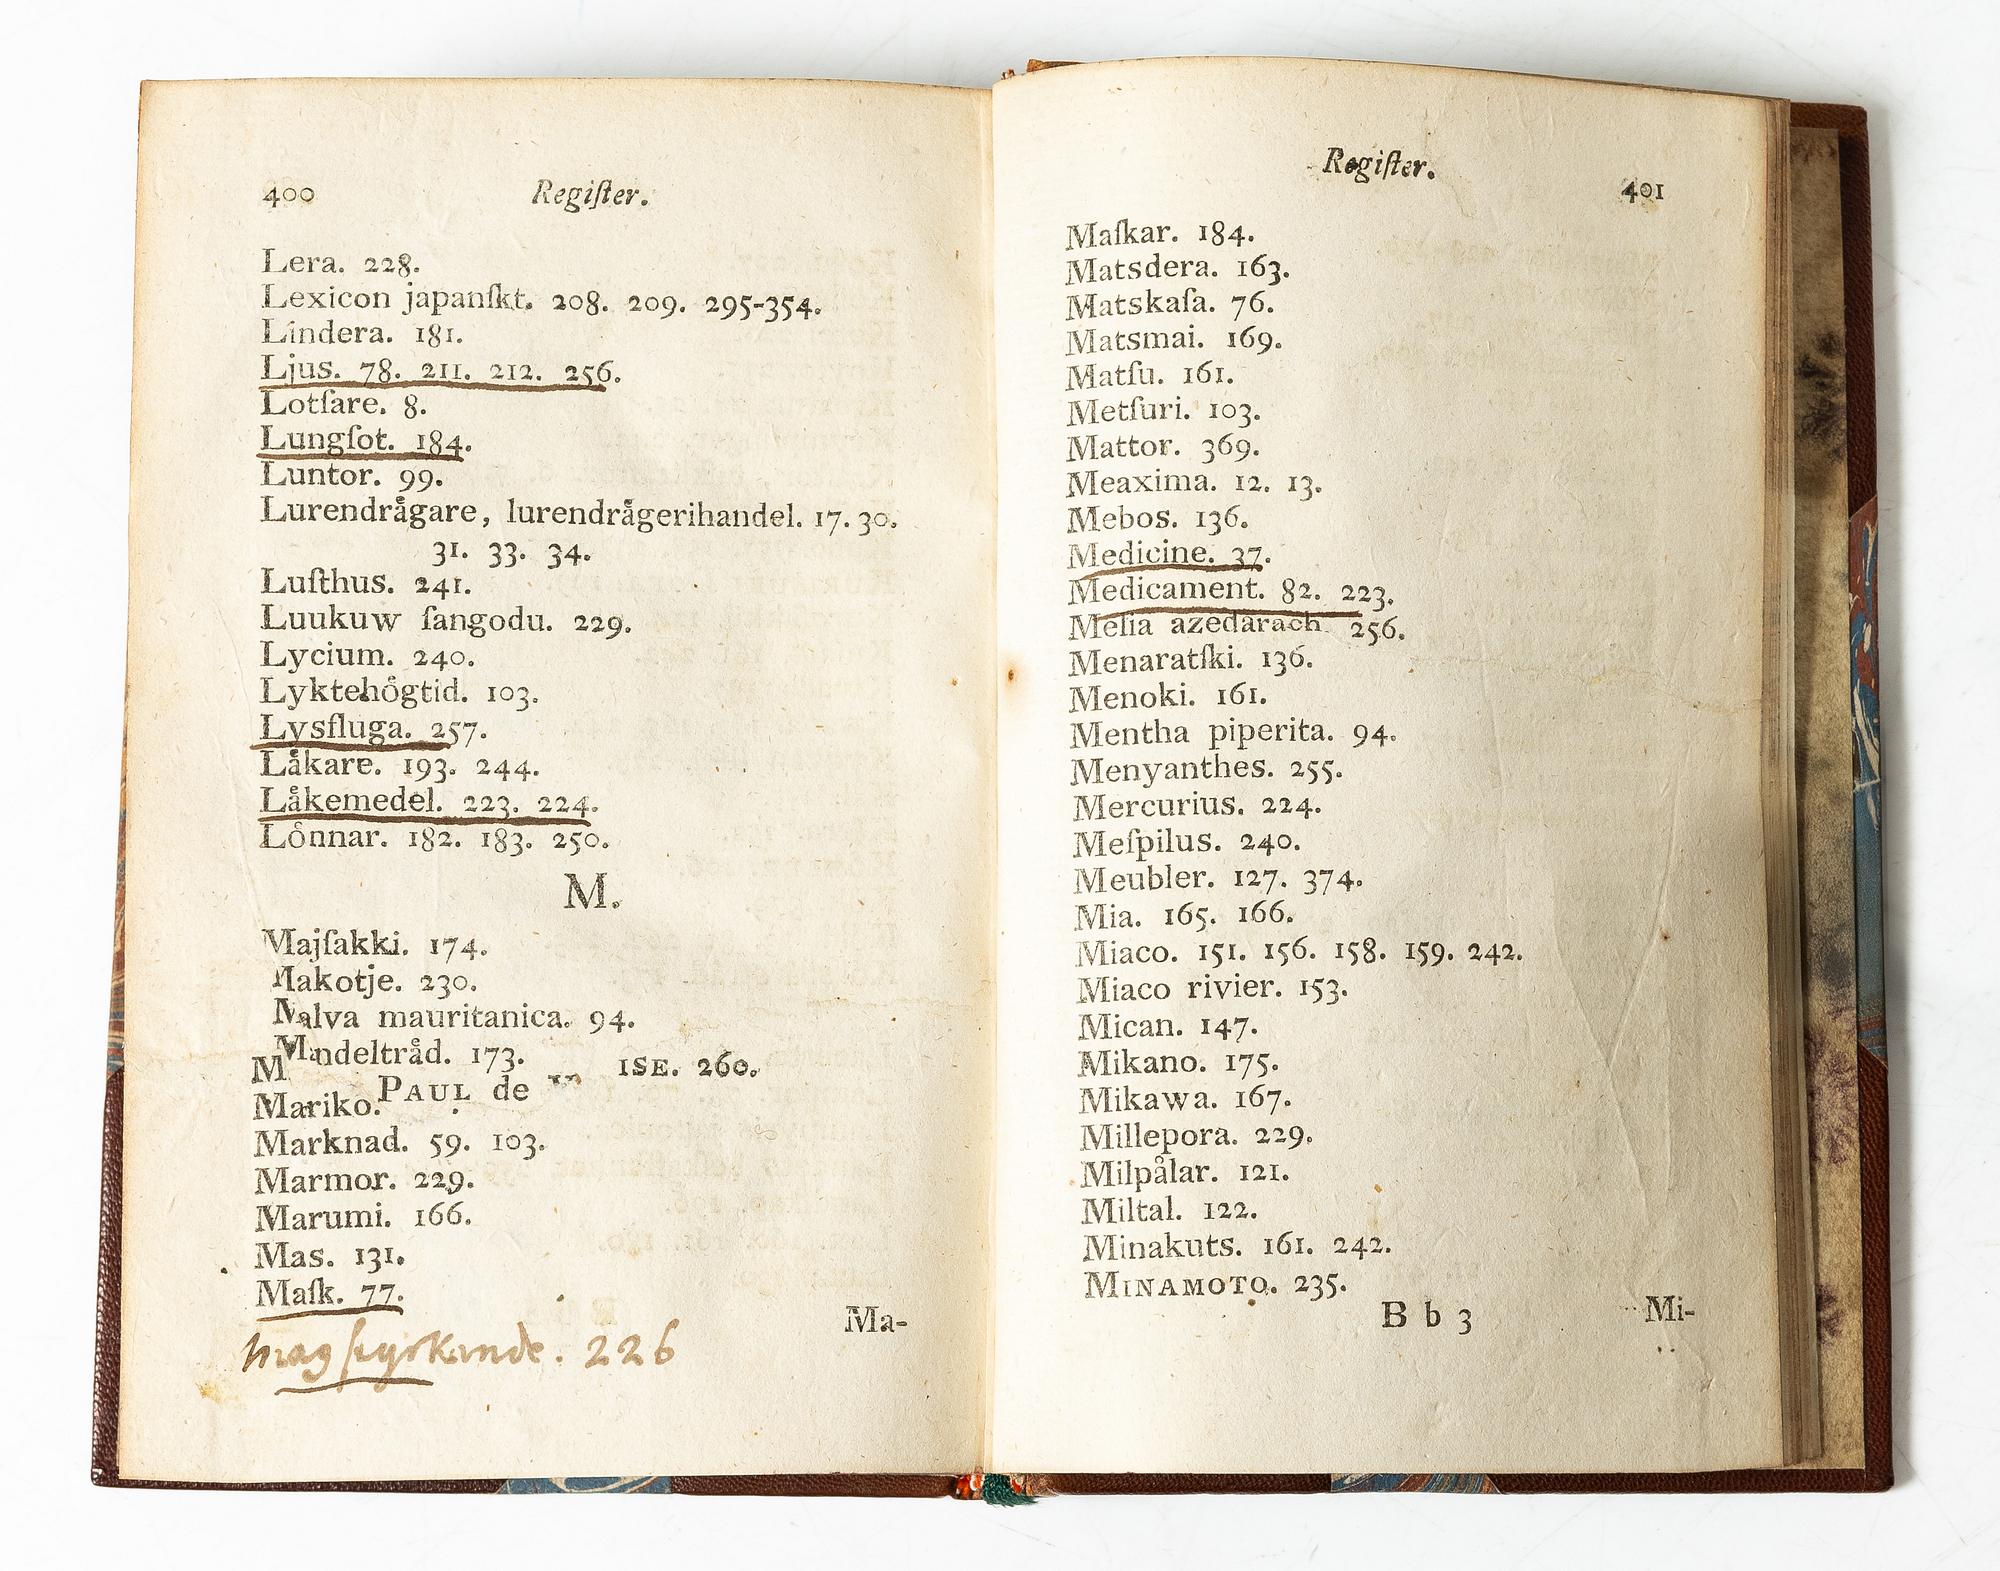 400 Regiſter.
Lera. 228.
Lexicon japanſkt. 208. 209. 295-354.
Lindera. 181.
Ljus. 78. 211. 212. 256.
Lotſare. 8.
Lungſot. 184.
Luntor. 99.
Lurendrågare, lurendrågerihandel. 17. 30.
31. 33. 34.
Luſthus. 241.
Luukuw ſangodu. 229.
Lycium. 240.
Lyktehögtid. 103.
Lysfluga. 257.
Låkare. 193. 244.
Låkemedel. 223. 224.
Lönnar. 182. 183. 250.
M.
Majſakki. 174.
Makotje. 230.
Malva mauritanica. 94.
Mandeltråd. 173.
M PAUL de ISE. 260.
Mariko.
Marknad. 59. 103.
Marmor. 229.
Marumi. 166.
Mas. 131.
Maſk. 77.
Ma-
226
Regiſter. 401
Maſkar. 184.
Matsdera. 163.
Matskaſa. 76.
Matsmai. 169.
Matſu. 161.
Metſuri. 103.
Mattor. 369.
Meaxima. 12. 13.
Mebos. 136.
Medicine. 37.
Medicament. 82. 223.
Melia azedarach 256.
Menaratſki. 136.
Menoki. 161.
Mentha piperita. 94.
Menyanthes. 255.
Mercurius. 224.
Meſpilus. 240.
Meubler. 127. 374.
Mia. 165. 166.
Miaco. 151. 156. 158. 159. 242.
Miaco rivier. 153.
Mican. 147.
Mikano. 175.
Mikawa. 167.
Millepora. 229.
Milpålar. 121.
Miltal. 122.
Minakuts. 161. 242.
MINAMOTO. 235.
B b 3 Mi-